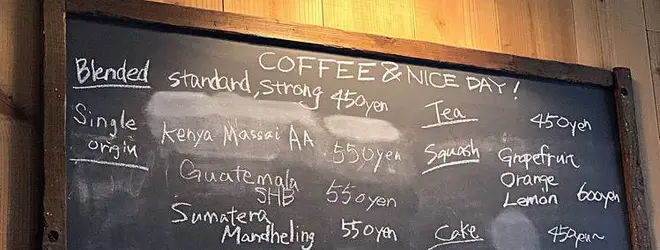 COFFEE & NICE DAY!
Blended standard, strong 450yen
Single origin
Kenya Massai AA 550yen
Guatemala SHB 550yen
Sumatera Mandheling 550yen
Tea 450yen
Squash Grapefruit
Orange
Lemon 600yen
Cake 450yen~